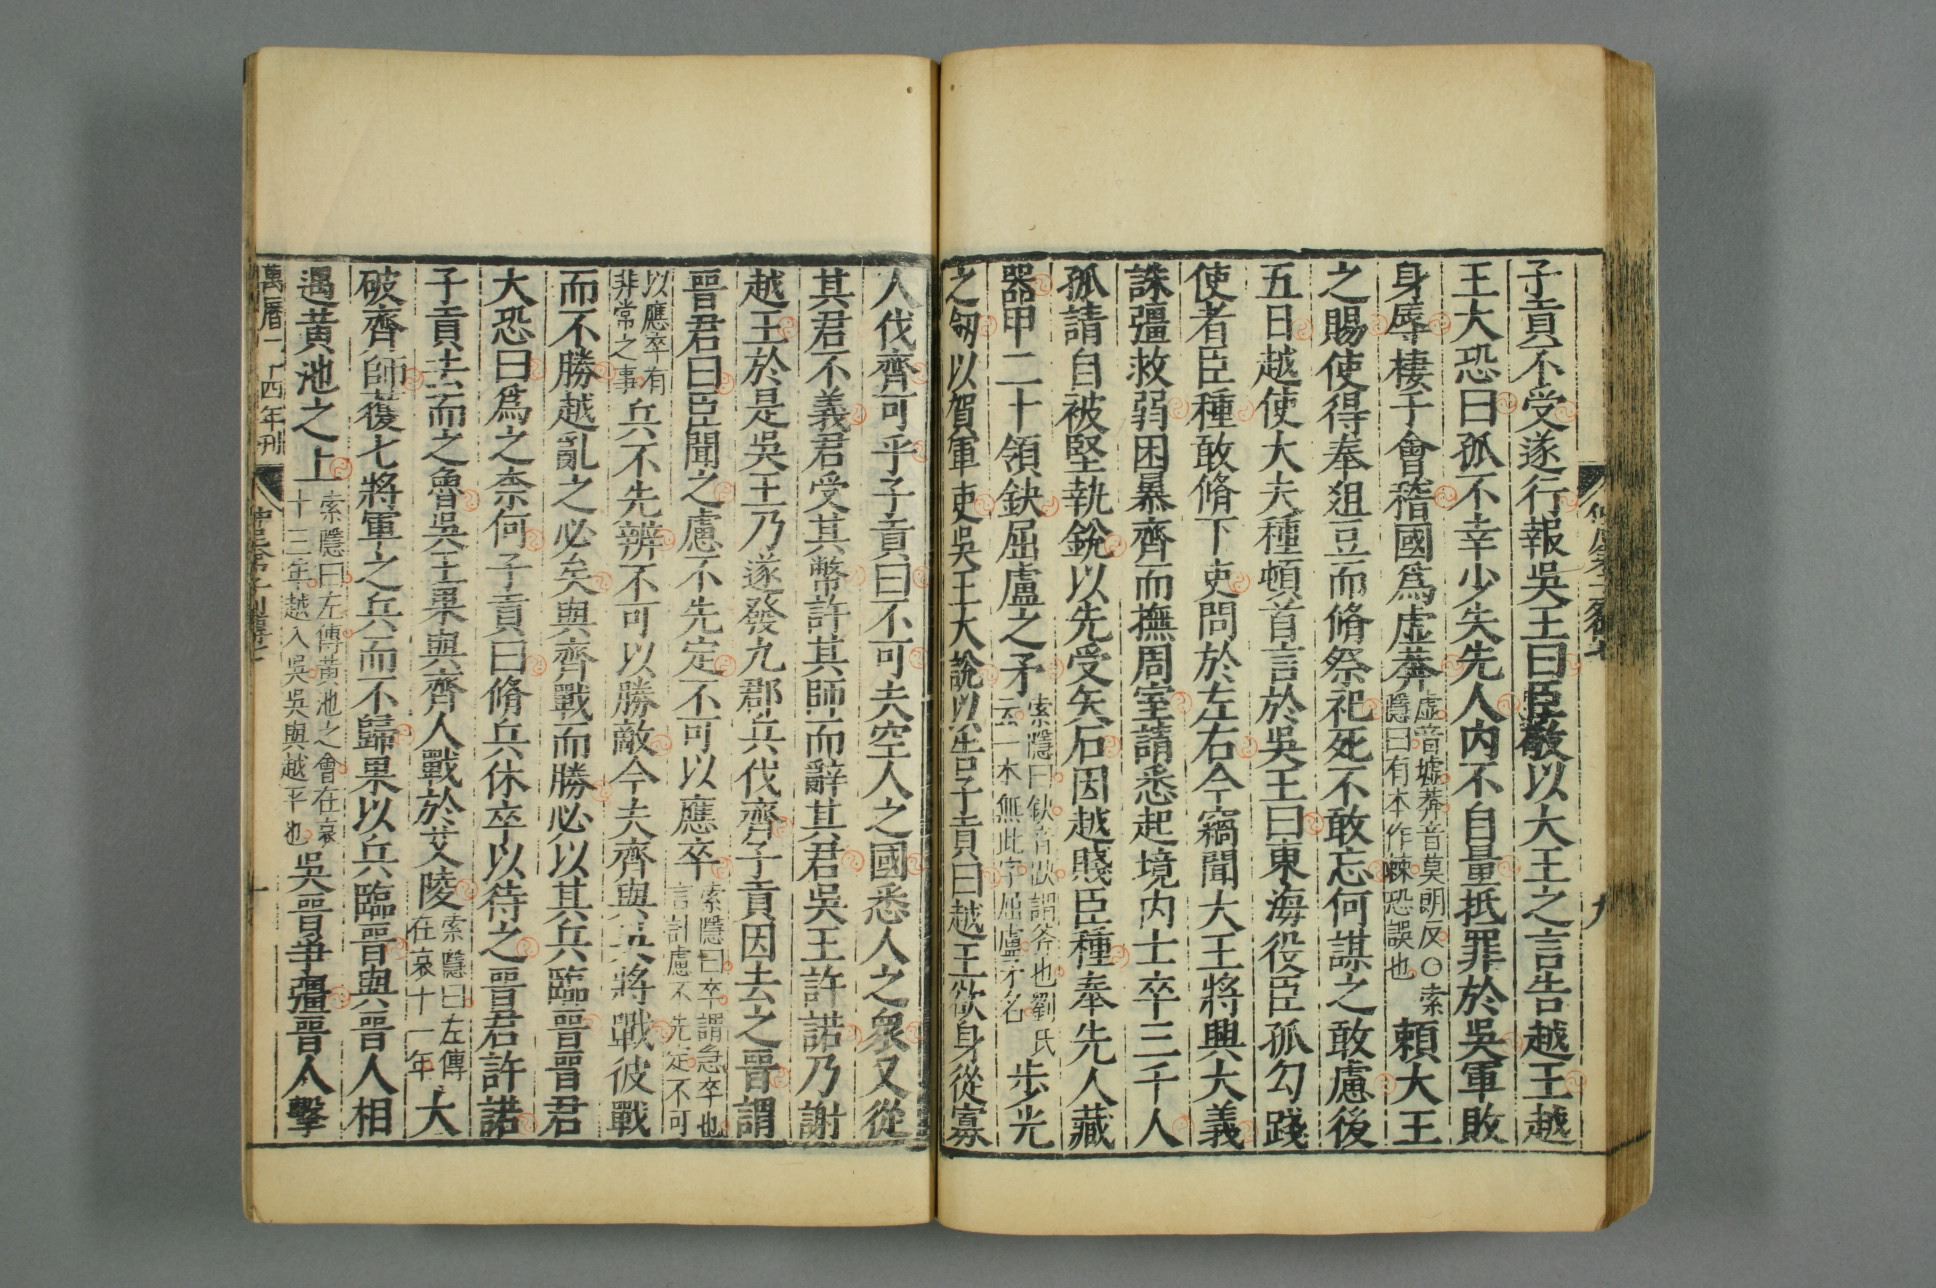 子貢不受遂行報吳王曰臣敬以大王之言告越王越
王大恐曰孤不幸少失先人內不自量抵罪於吳軍敗
身辱棲于會稽國爲虛莽虛音墟莽音莫朗反○索隱曰有本作棘恐誤也賴大王
之賜使得奉俎豆而脩祭祀死不敢忘何謀之敢慮後
五日越使大夫種頓首言於吳王曰東海役臣孤勾踐
使者臣種敢脩下吏問於左右今竊聞大王將興大義
誅彊救弱困暴齊而撫周室請悉起境內士卒三千人
孤請自被堅執銳以先受矢石因越賤臣種奉先人藏
器甲二十領鈇屈盧之矛索隱曰鈇音趺謂斧也劉氏云一本無此字屈盧矛名步光
之劎以賀軍吏吳王大說以告子貢曰越王欲身從寡
人伐齊可乎子貢曰不可夫空人之國悉人之衆又從
其君不義君受其幣許其師而辭其君吳王許諾乃謝
越王於是吳王乃遂發九郡兵伐齊子貢因去之晉謂
晉君曰臣聞之慮不先定不可以應卒索隱曰卒謂急卒也言計慮不先定不可
以應卒有非常之事兵不先辨不可以勝敵今夫齊與吳將戰彼戰
而不勝越亂之必矣與齊戰而勝必以其兵臨晉晉君
大恐曰爲之柰何子貢曰脩兵休卒以待之晉君許諾
子貢去而之魯吳王果與齊人戰於艾陵索隱曰左傳在哀十一年大
破齊師獲七將軍之兵而不歸果以兵臨晉與晉人相
遇黃池之上索隱曰左傳黃池之會在哀十三年越入吳吳與越平也吳晉爭彊晉人擊
萬曆二十四年刊